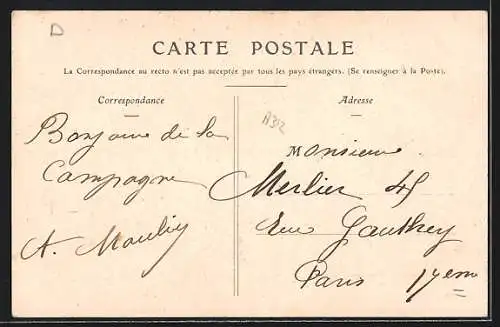 D
CARTE POSTALE
La Correspondance au recto n'est pas acceptée par tous les pays étrangers. (Se renseigner à la Poste).
Correspondance
Bonjour de la
Campagne
A. Moulin
Adresse
A312
Monsieur
Merlier 45
Rue Gauthey
Paris 17em